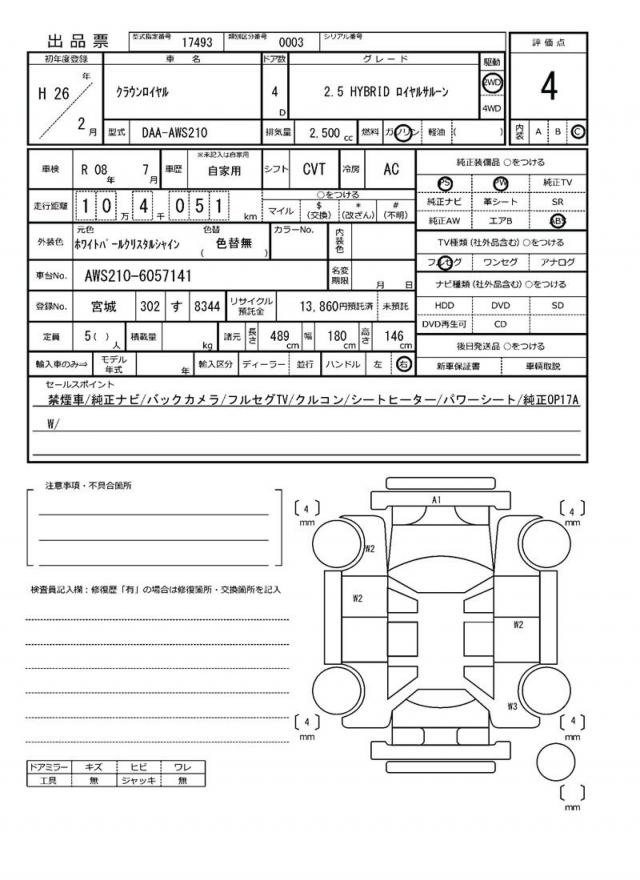 出品票
型式指定番号 17493 類別区分番号 0003 シリアル番号
初年度登録 車名 ドア数 グレード 駆動 評価点
H 26 年 2 月
クラウンロイヤル 4 D 2.5 HYBRID ロイヤルサルーン 2WD 4WD 4
型式 DAA-AWS210 排気量 2,500 cc 燃料 ガソリン 軽油 ( ) 内装 A B C
車検 R 08 年 7 月 車歴 ※未記入は自家用 自家用 シフト CVT 冷房 AC
走行距離 1 0 万 4 千 0 5 1 km
○をつける
マイル $(交換) *(改ざん) #(不明)
外装色 元色 ホワイトパールクリスタルシャイン 色替 ( 色替無 ) カラーNo. 内装色
車台No. AWS210-6057141 名変期限 月 日
登録No. 宮城 302 す 8344 リサイクル預託金 13,860円預託済 未預託
定員 5( ) 人 積載量 kg 諸元 長さ 489 cm 幅 180 cm 高さ 146 cm
輸入車のみ⇒ モデル年式 年 輸入区分 ディーラー 並行 ハンドル 左 右
純正装備品 ○をつける
PS PW 純正TV
純正ナビ 革シート SR
純正AW エアB ABS
TV種類(社外品含む)○をつける
フルセグ ワンセグ アナログ
ナビ種類(社外品含む)○をつける
HDD DVD SD
DVD再生可 CD
後日発送品 ○をつける
新車保証書 車輌取説
セールスポイント
禁煙車/純正ナビ/バックカメラ/フルセグTV/クルコン/シートヒーター/パワーシート/純正OP17A
W/
注意事項・不具合箇所
検査員記入欄:修復歴「有」の場合は修復箇所・交換箇所を記入
ドアミラー キズ ヒビ ワレ
工具 無 ジャッキ 無
A1
4 mm
4 mm
W2
W2
W2
W3
4 mm
4 mm
mm